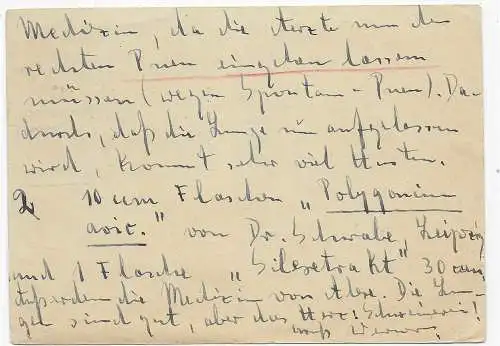 Medizin, da die Ärzte nun den
rechten Pneu eingehen lassen
müssen (wegen Spontan-Pneu). Da-
durch, daß die Lunge nun aufgelassen
wird, kommt sehr viel Husten.
2 10 ccm Flaschen „Polygonium
avic." von Dr. Schwabe, Leipzig
und 1 Flasche „Siletrakt" 30 ccm,
außerdem die Medizin von Alex. Die Lun-
gen sind gut, aber das Herz! Schweinerei!
Gruß Werner!